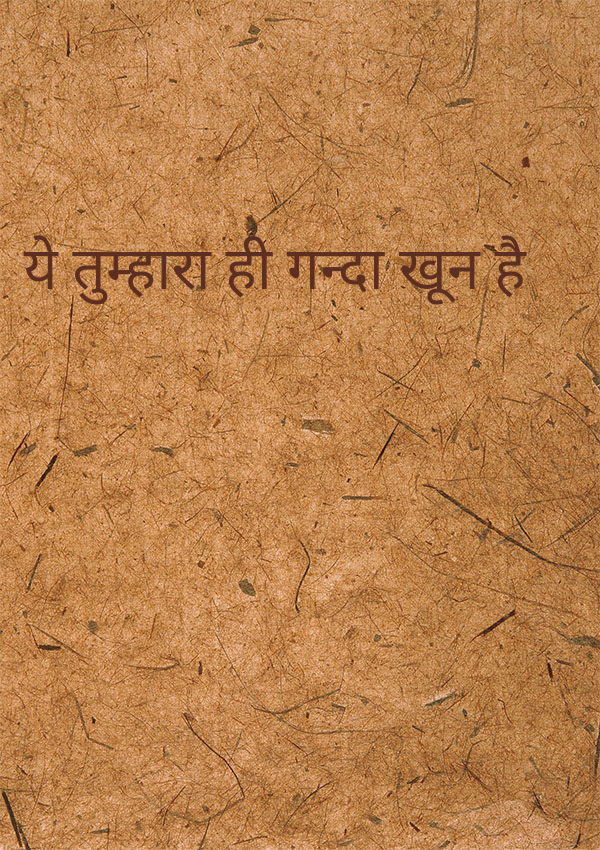 ये तुम्हारा ही गन्दा खून है